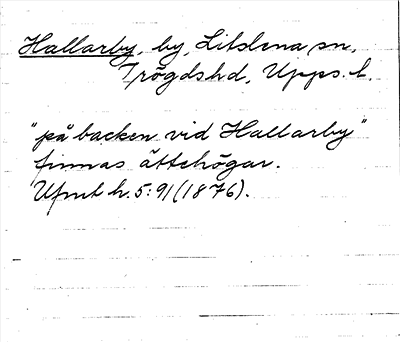 Hallarby, by, Litslena sn,
Trögds hd, Upps. l.
"på backen vid Hallarby"
finnas ättehögar.
Ufmt h. 5: 91 (1876).